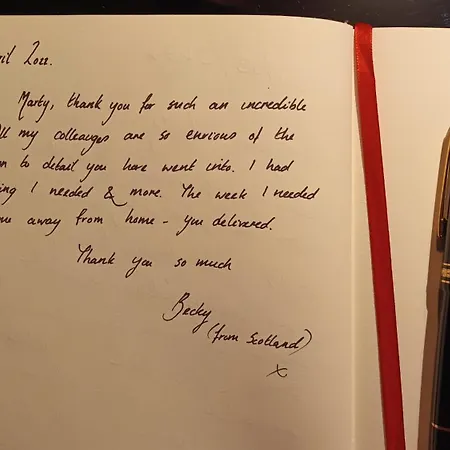 ril 2022.
Marty, thank you for such an incredible
my colleagues are so envious of the
to detail you have went into. I had
I needed & more. The week I needed
away from home - you delivered.
Thank you so much
Becky
(from Scotland)
x